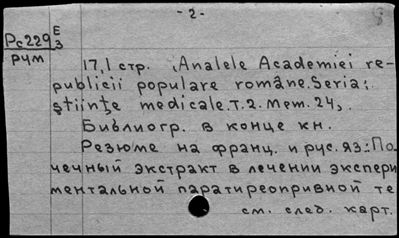 - 2 -
Рс229 Е
3
рум
17,1 стр. (Analele Academiei re-
publicii populare române. Seria:
ştiinţe medicale. T. 2. Mem. 24).
Библиогр. в конце кн.
Резюме на франц. и рус. яз.: По-
чечный экстракт в лечении экспери
ментальной паратиреопривной те
см. след. карт.